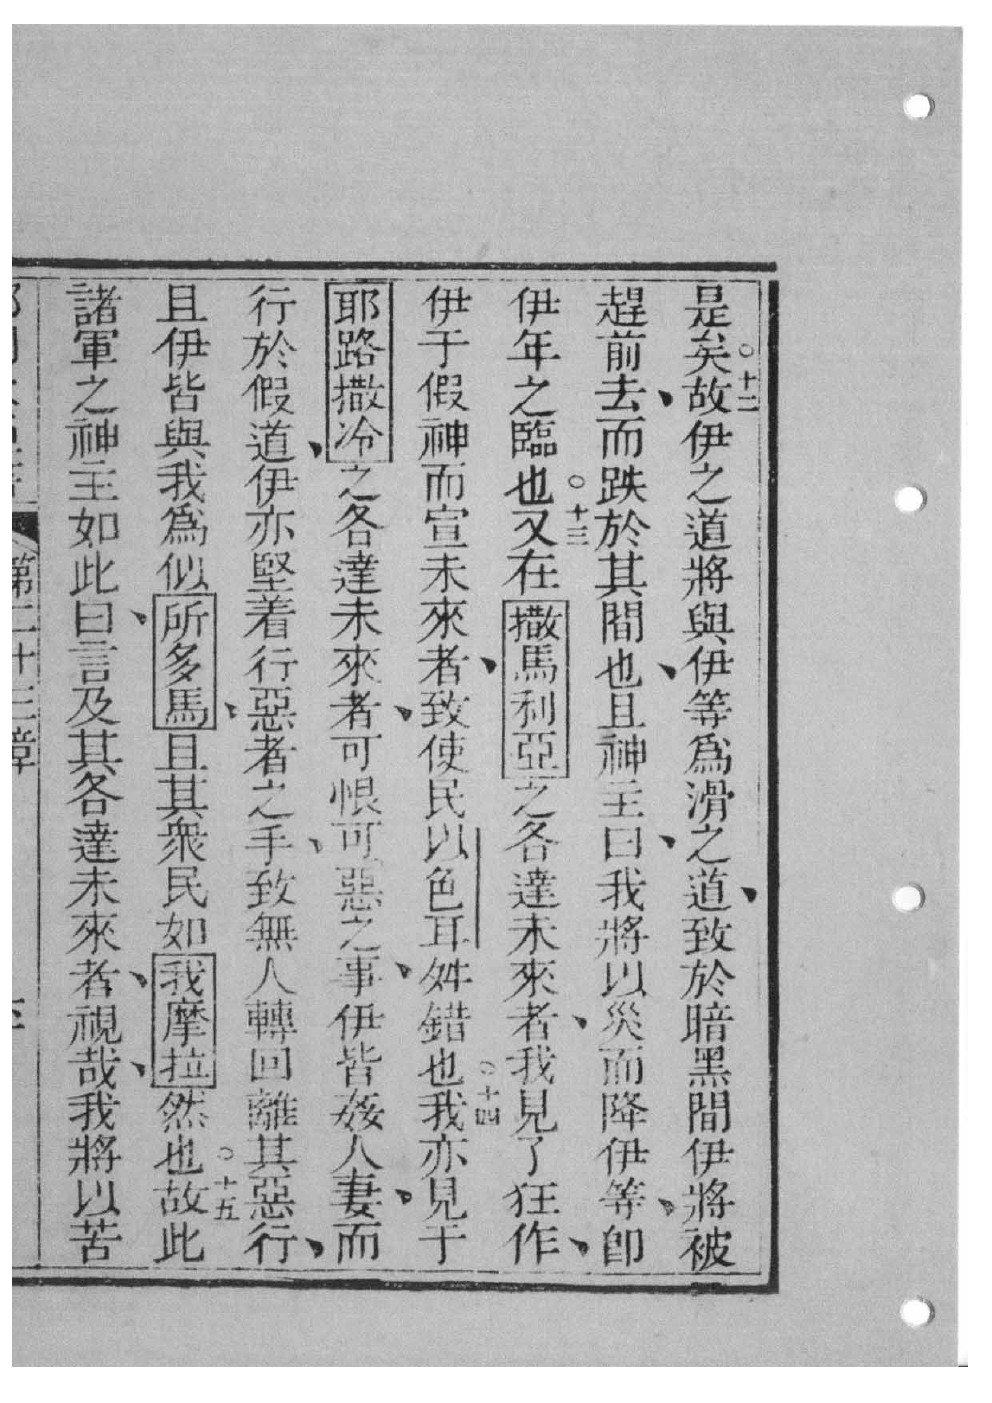 是矣○十二故伊之道將與伊等爲滑之道、致於暗黑間伊將被
趕前去、而跌於其間也、且神主曰、我將以災而降伊等、卽
伊年之臨也○十三又在撒馬利亞之各達未來者、我見了狂作、
伊于假神而宣未來者、致使民以色耳舛錯也○十四我亦見于
耶路撒冷之各達未來者、可恨可惡之事、伊皆姦人妻、而
行於假道、伊亦堅着行惡者之手、致無人轉回離其惡行、
且伊皆與我爲似所多馬、且其衆民如我摩拉然也○十五故此
諸軍之神主如此曰、言及其各達未來者、視哉、我將以苦
第二十三章